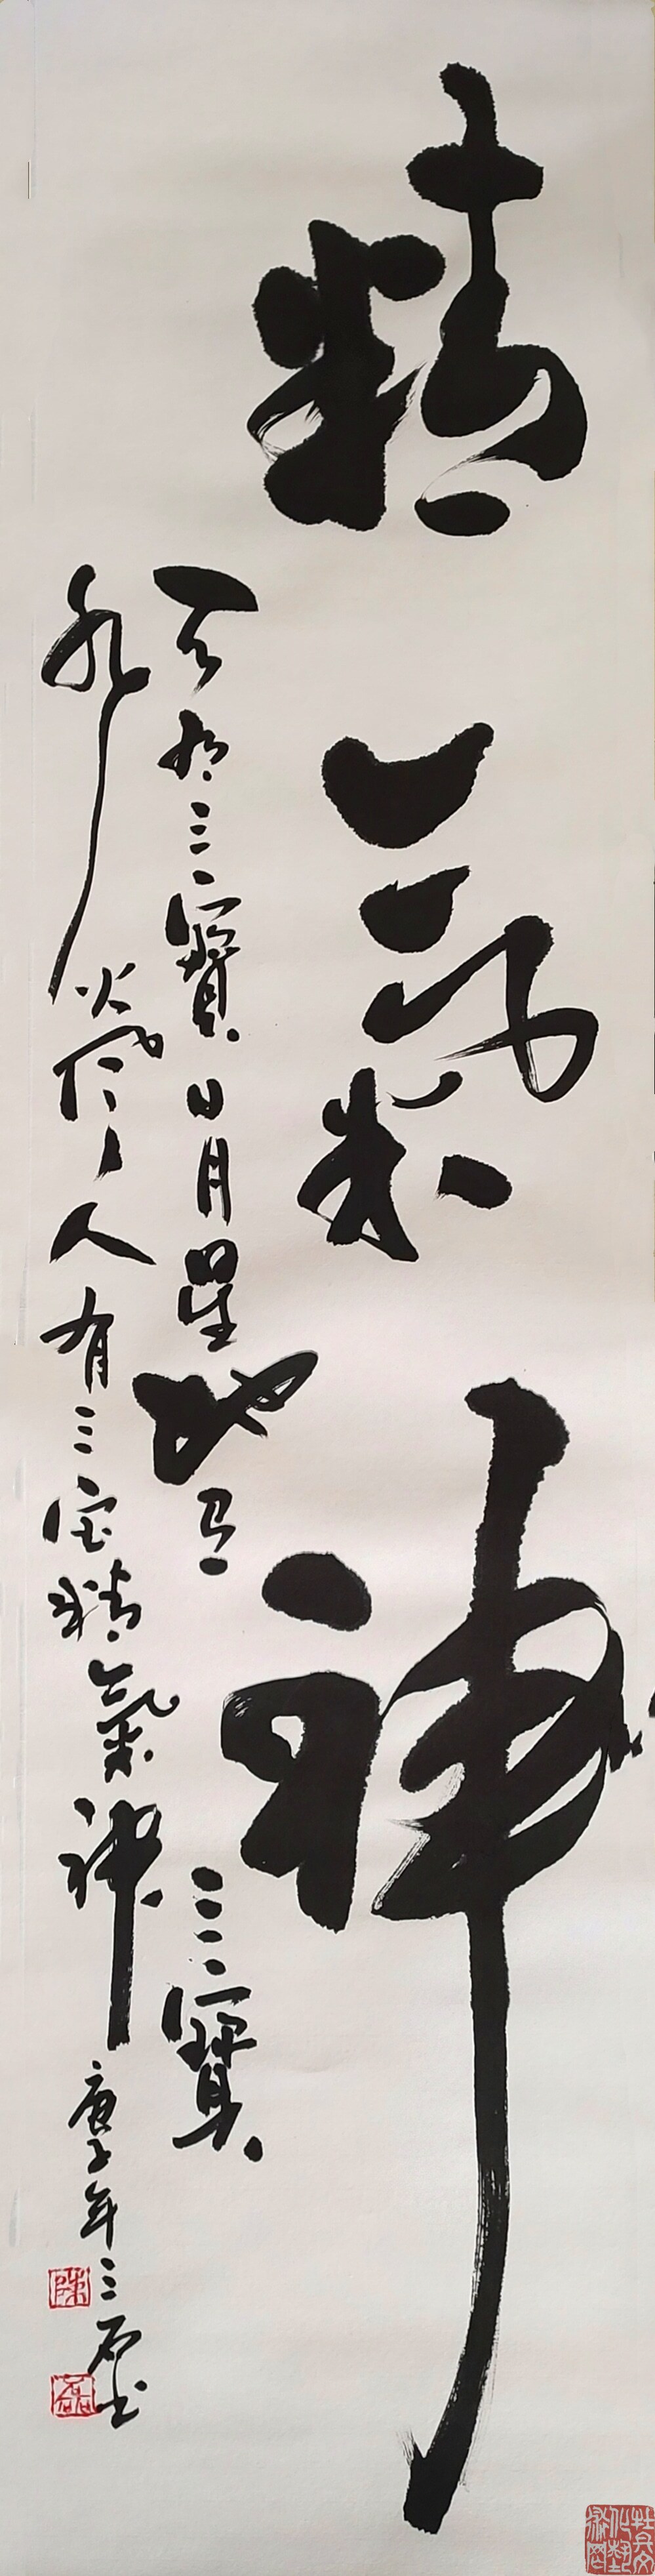 精氣神
天有三寶日月星地有三寶
水火風人有三宝精氣神庚子年三石书
陳
磊